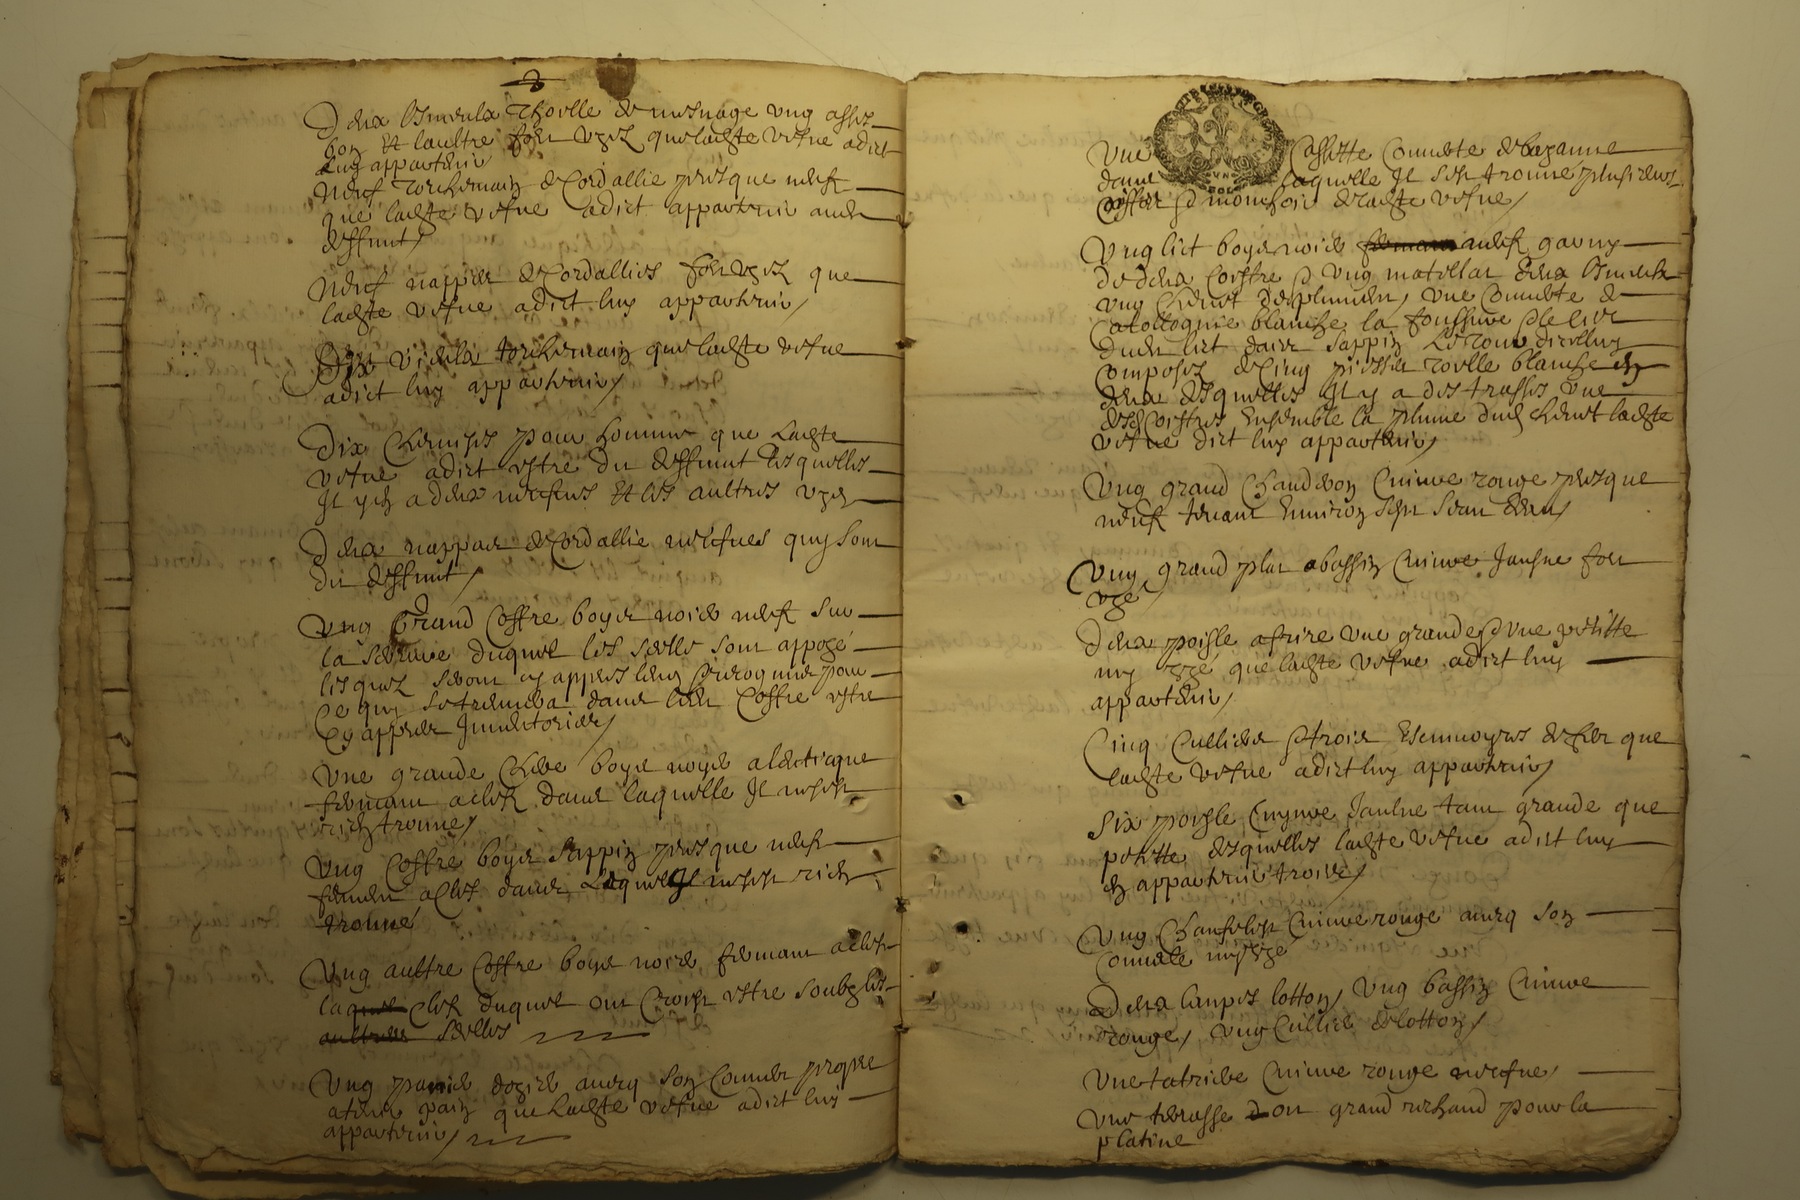 2
Deux linceulx thoille de mesnage ung asses
bon et laultre fort uzez que ladte vefve a dict
luy appartenir
Neuf torchemain de Cordallie presque neuf
que ladte vefve a dict appartenir audt
deffunt /
Neuf nappes de Cordallies fort uzez que
ladte vefve a dict luy appartenir /
Six vieulx torchemain que ladte vefve
a dict luy appartenir /
Dix Chemises pour homme que ladte
vefve a dict estre du deffunt desquelles
Il y en a deux neufves et les aultres uzes
Deux nappes de Cordallie neufves quy sont
du deffunt /
Ung Grand Coffre boys noier neuf sur
la serrure duquel les seelles sont appozé
lesquez seront cy appres leves et recogneu pour
ce quy se treuvera dans ledt Coffre estre
cy appres Inventories /
Une grande boys noyer
fermant a clef dans laquelle Il ne sest
rien trouve /
Ung Coffre boys sappin presque neuf
fermant a clef dans Lequel Il ne sest rien
trouvé
Ung aultre Coffre boys noier fermant a clef
la clef duquel ont estre soubz les
seelles
Ung panier dozier avecq son Couvert propre
a tenir pain que ladte vefve a dict luy
appartenir /
Une Cassette Couverte de bazanne
dans laquelle Il sest trouvé plusieurs
coiffes et mouchoir de ladte vefve /
Ung lict boys noier neuf garny
de deux Coistre et ung mattellat deux linceulx
ung chevet de plume / une Couverte de
Catollognie blanche la fonssure et le ciel
dudt lict dais sappin Le tour dicelluy
composez de cinq piesses toille blanche en
deux desquelles Il y a des trasses une
desd Coistres Ensemble la plume dud Chevet ladte
vefve dict luy appartenir /
Ung grand Chauderon Cuivre rouge presque
neuf tenant Environ sept seau deau /
Ung grand plat a bassin Cuivre Jaulne fort
uzé
Deux poisle a frire une grande et une petitte
my uzé que ladte vefve a dict luy
appartenir /
Cinq Cullieres et trois Escumoyres de fer que
ladte vefve a dict luy appartenir /
Six poisle Cuyvre Jaulne tant grande que
petitte desquelles ladte vefve a dict luy
en appartenir trois /
Ung Chauffelict Cuivre rouge avecq son
Couvercle my uzé
Deux lampes lotton / Ung bassin Cuivre
rouge / ung Cullier de lotton /
Une Cuivre rouge neufve /
Une terrasse ou grand rechaud pour la
platine